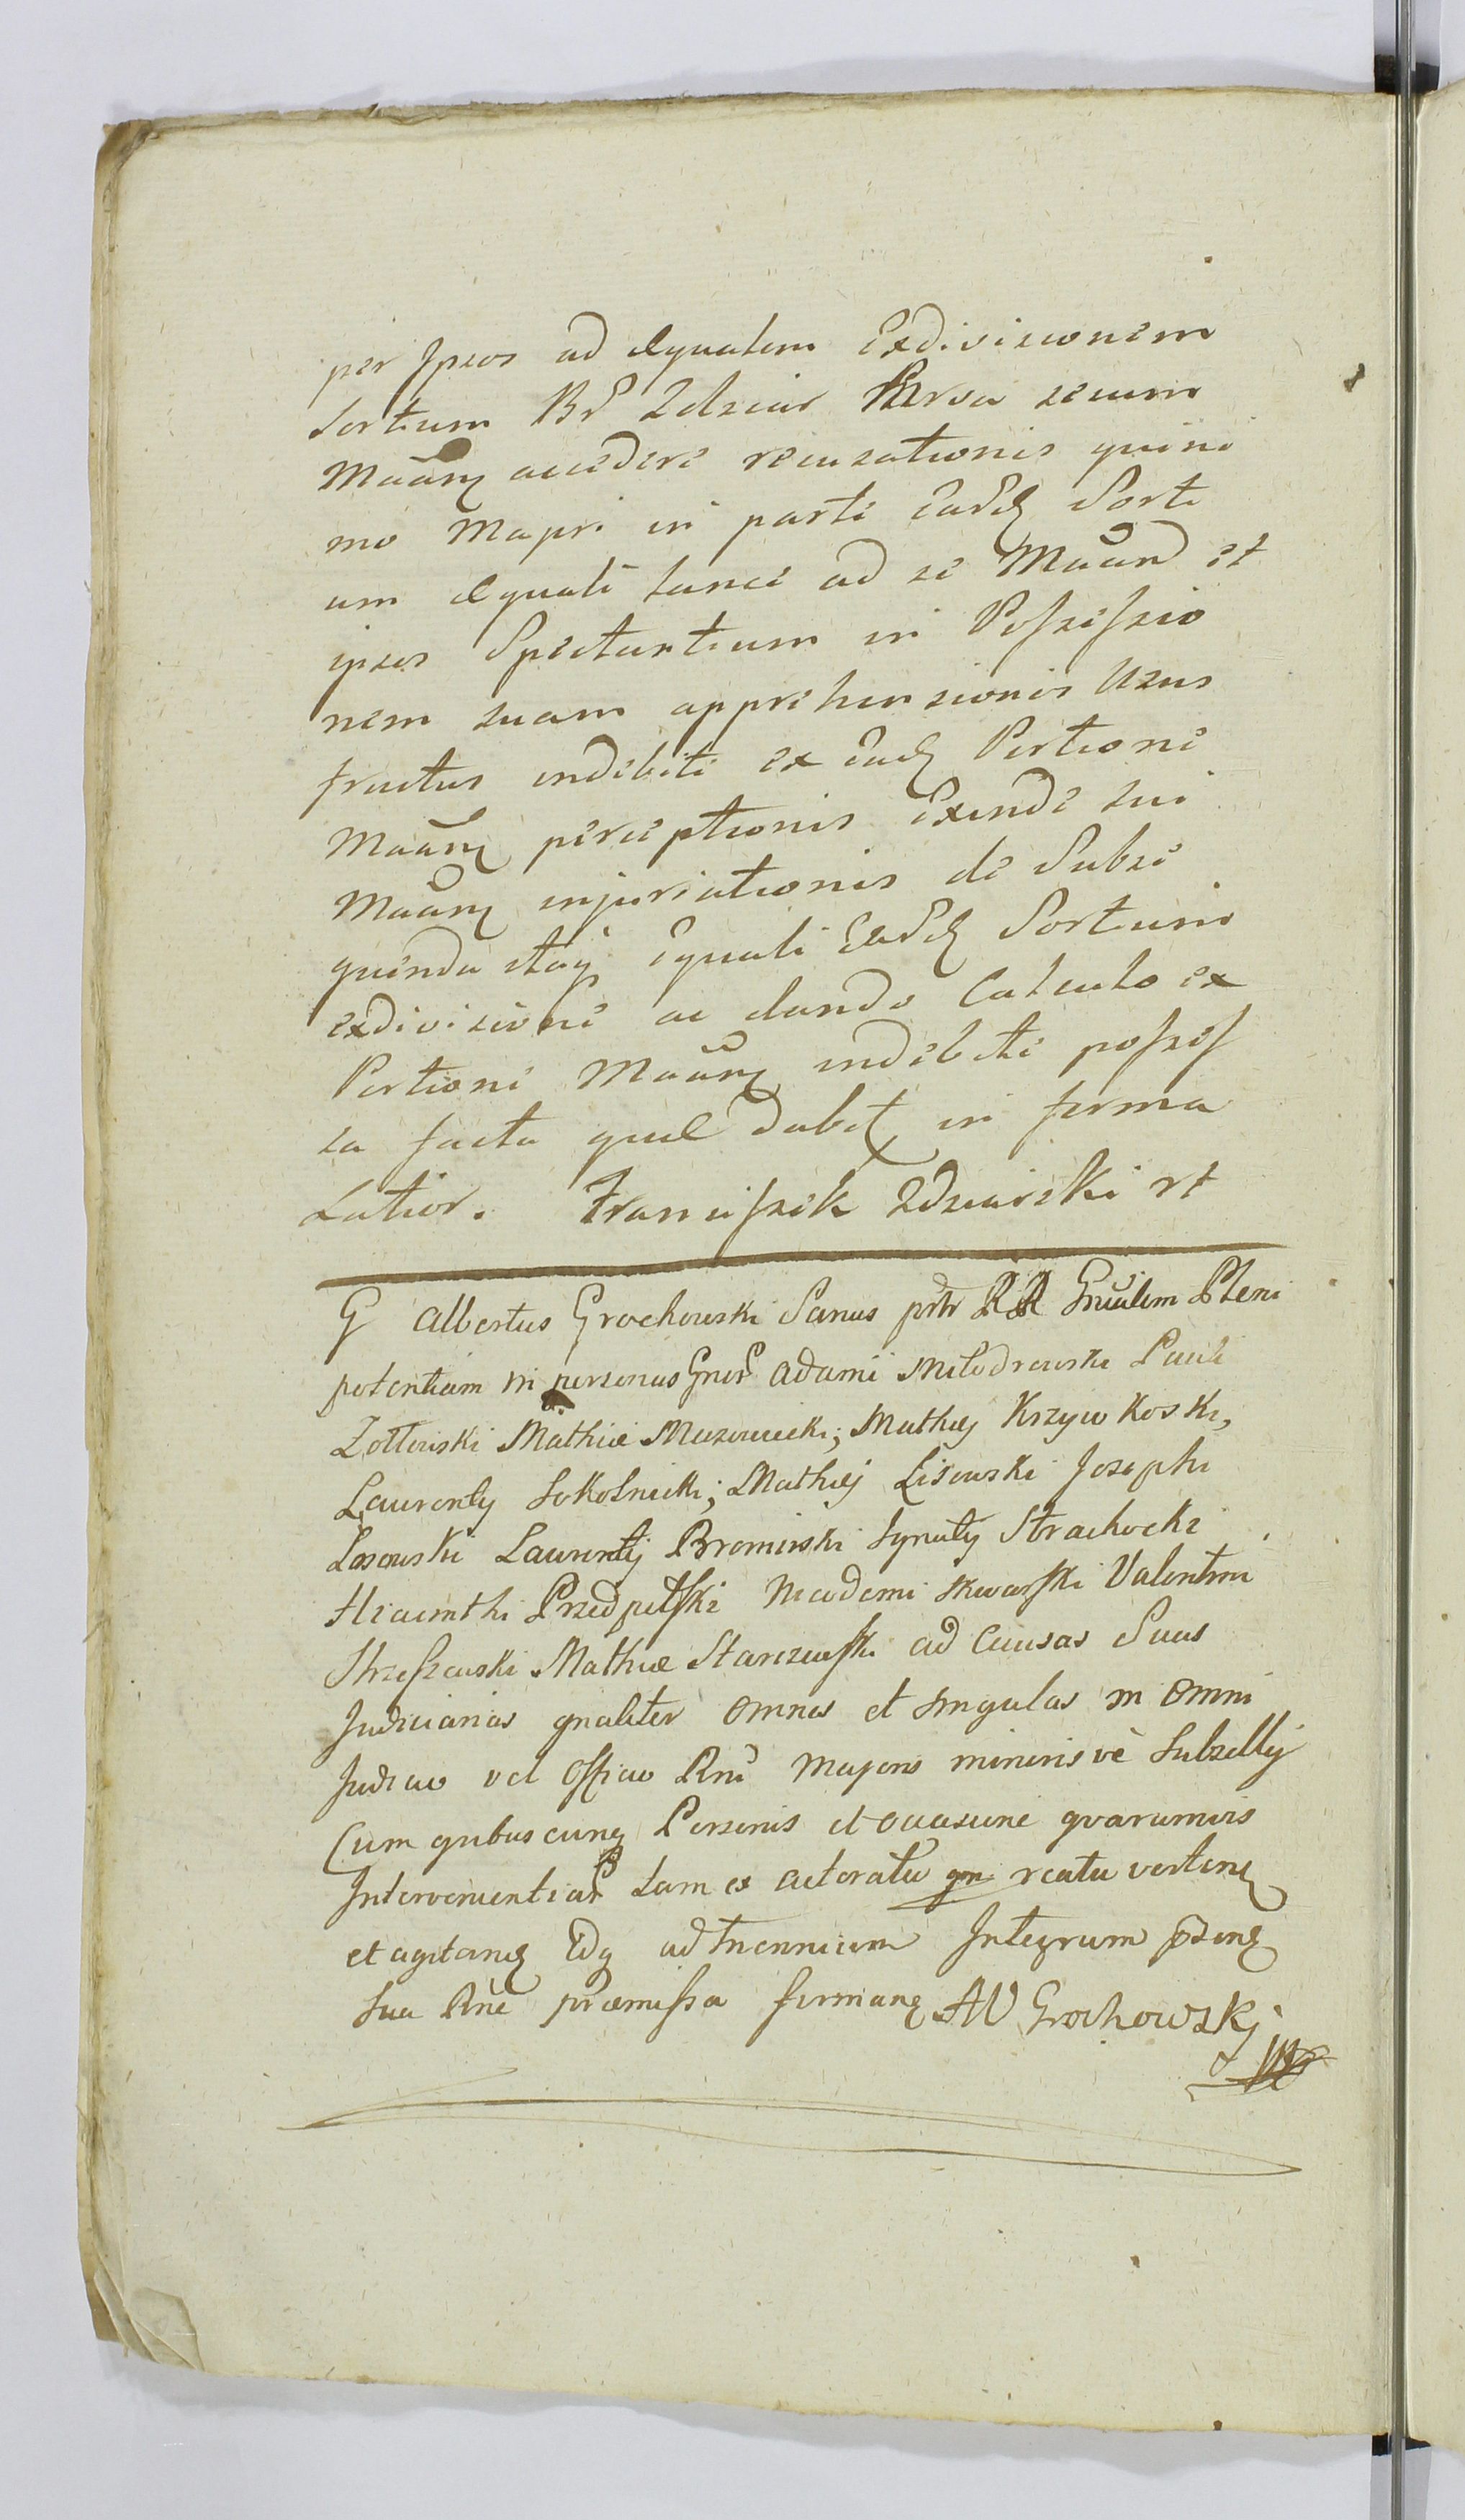 per Ipsos ad aequalem Exdivisionem
Sortium Bŕ Zdziar secum
Maãrq accedere recusationis quini
mo Mapri in parte earðq Sorti
um aequali lance ad se Maãrð et
ipsos Spectantium in Possessio
nem suam apprehensionis Usus
fructus indebite ex eadq Portione
Maãrq perceptionis Exinde sui
Maãrq injuriationis de Subse
quenda itaq Equali earðq Sortium
exdivisione ac dando Calculo ex
Portione Maãrq indebite posses
sa facta quae dabitq in forma
Latior. Franciszek Zdziarski rt
G Albertus Grochowski Sanus prtr RR Gnãlem Pleni
potentiam in personas Gner Adami Milodrowski Pauli
Zołtowski Mathiae Mazowiecki; Mathiej Krzywkoski,
Laurenty Sokolnicki; Mathiej Lisowski Josephi
Lasowski Laurentij Bromirski Ignaty Strachocki
Hiacinthi Przedpełski Nicodemi Skwarski Valentini
Strzeszewski Mathiae Starczewski ad Causas Suas
Judiciarias gnaliter omnes et singulas in omni
Judicio vel Officio Rni Majoris minorisvè Subselly
Cum quibuscunq Personis et occasione qvarumvis
Intervenientiar tam ex actoratu qm reatu vertenq
et agitanq Edq ad triennium Integrum pszenq
Sua Rne praemissa firmanq AW Grochowskj